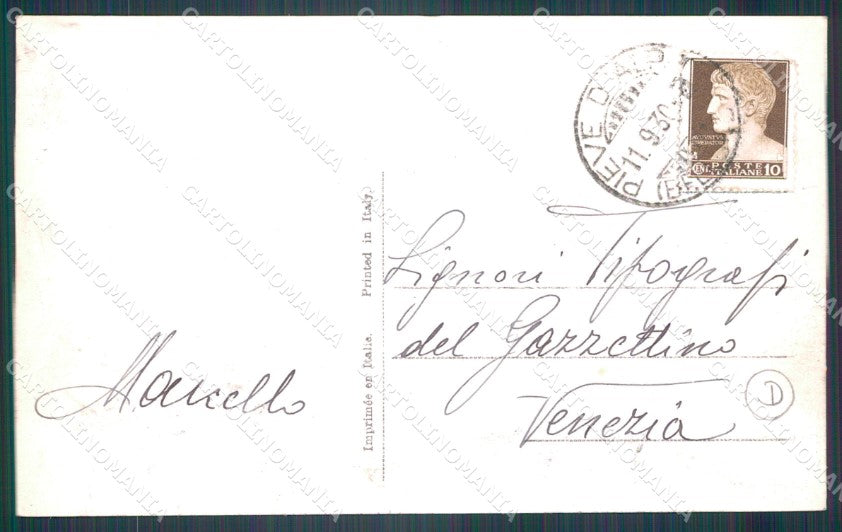 PIEVE D'ALP
11.9.30
(BEL
AVGVSTVS
IMPERATOR
POSTE
ITALIANE 10
Signori Tipografi
del Gazzettino
Venezia
D
Marcello
Imprimée en Italie. Printed in Italy.
CARTOLINOMANIA